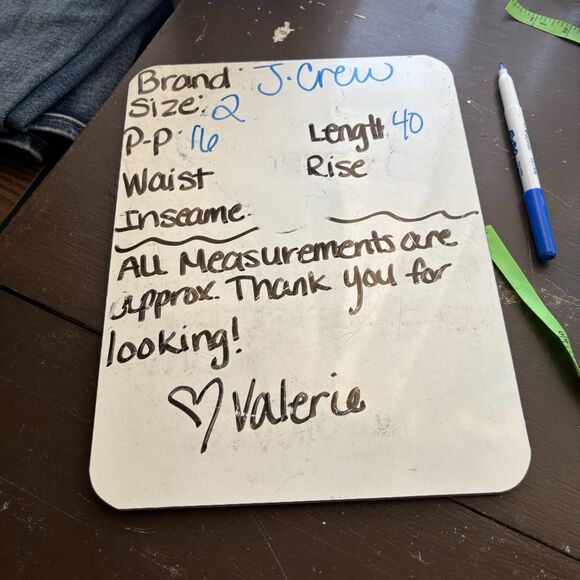 Brand: J. Crew
Size: 2
P-P: 16 Length 40
Waist Rise
Inseame
All Measurements are
approx. Thank you for
looking!
♡ Valerie